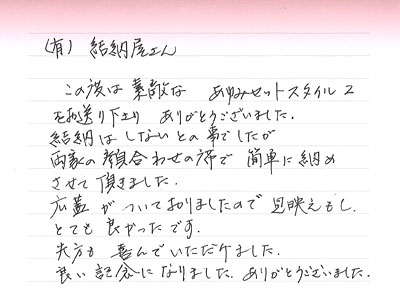 (有) 結納屋さん
この度は 素敵な あゆみセットスタイル2
をお送り下さり ありがとうございました.
結納は しないとの事でしたが
両家の顔合わせの席で 簡単に納め
させて頂きました.
広蓋がついておりましたので 見映えもし、
とても良かったです.
先方も 喜んでいただけました.
良い記念になりました. ありがとうございました.